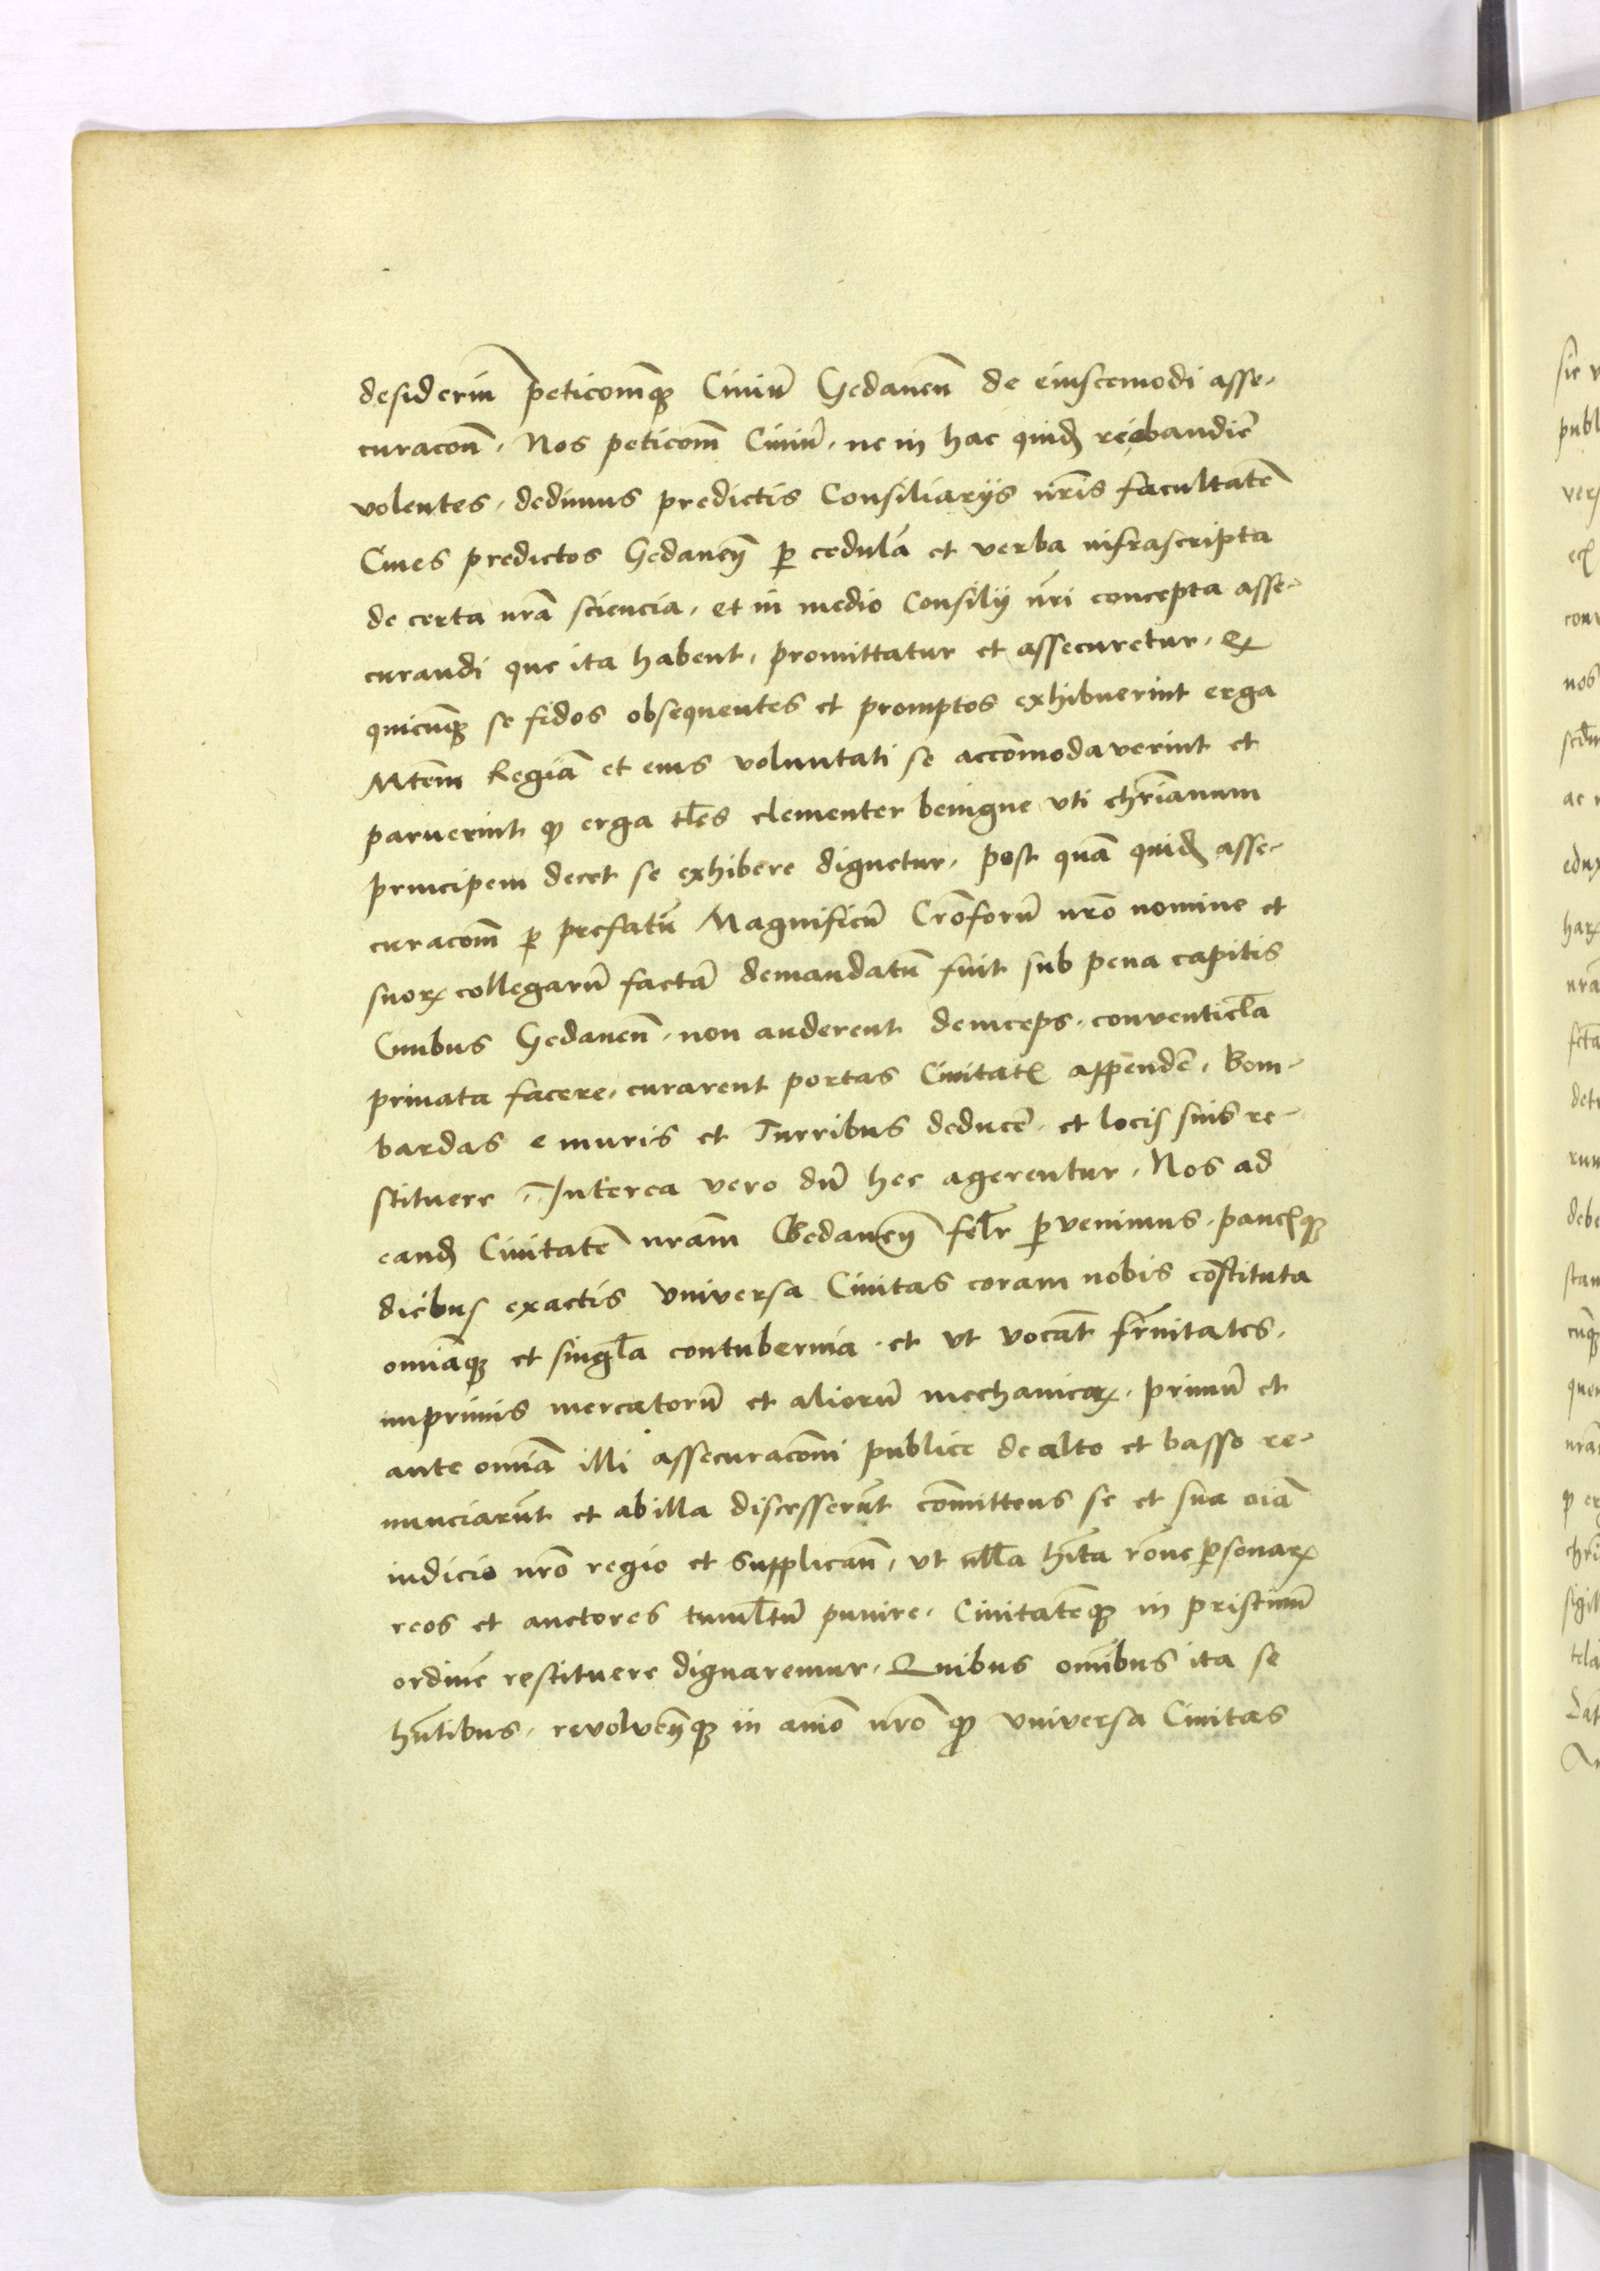 desideriu peticōmq3 Ciuiū Gedanen̄ de eiuscemodi asse-
curacon̄. Nos peticōm Ciuiū. ne in hac quid
volentes. dedimus predictis Consiliarijs nr̄is facultatē
Ciues predictos Gedanen̄ p cedulā et verba infrascripta
de certa nrā sciencia. et in medio Consilij nr̄i concepta asse-
curandi que ita habent. promittatur et assecuretur. Qꝫ
quicūq3 se fidos obsequentes et promptos exhibuerint erga
Mtēm Regiā et eius voluntati se accōmodauerint et
paruerint ꝙ erga tl̄es clementer benigne vti chrīanum
principem decet se exhibere dignetur. post quā quid asse-
curacōm p prefatū Magnificū Crōforū nrō nomine et
suoꝝ collegarū factā demandatū fuit sub pena capitis
Ciuibus Gedanen̄. non auderent deinceps. conventicl̄a
priuata facere. curarent portas Ciuitatꝭ appendē. Bom-
bardas e muris et Turribus deducē. et locis suis re-
stituere. Interea vero dū hec agerentur. Nos ad
eand Ciuitatē nrām Gedanen̄ fel̄r pvenimus. paucꝭq3
diebus exactis vniuersa Ciuitas coram nobis cōstituta
omīaq3 et singl̄a contubernia. et vt vocāt fr̄nitates.
imprimis mercatorū et aliorū mechanicoꝝ. primū et
ante omīa illi assecuracōni publice de alto et basso re-
nunciarūt et ab illa discesserūt cōmittens se et sua oīa
iudicio nrō regio et supplicān̄. vt nl̄la hīta rōne psonaꝝ
reos et auctores tuml̄tū punire. Ciuitatēq3 in pristinū
ordinē restituere dignaremur. Quibus omībus ita se
hn̄tibus. revolven̄q3 in aniō nrō ꝙ vniuersa Ciuitas